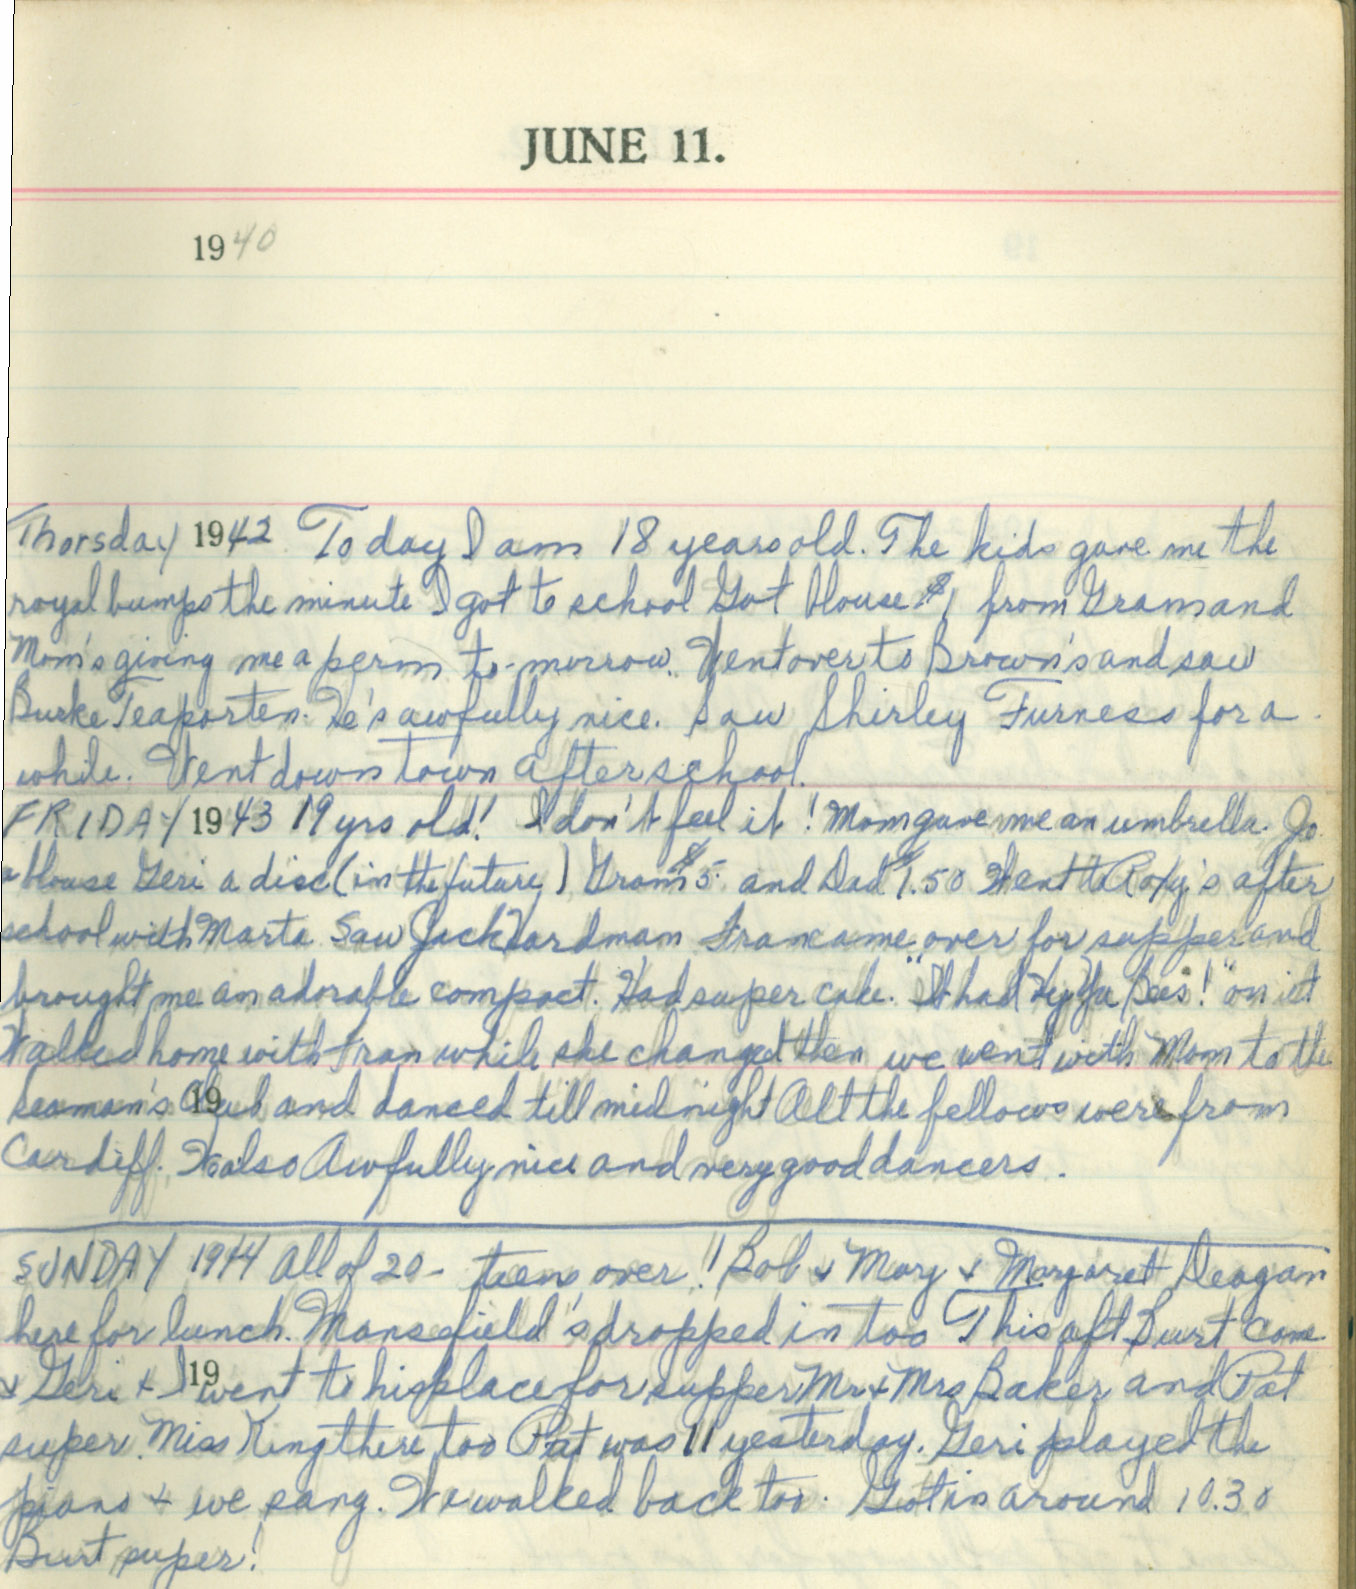 JUNE 11.
1940
Thorsday 1942 Today I am 18 years old. The kids gave me the
royal bumps the minute I got to school Got blouse $1 from Gram and
Mom's giving me a perm to-morrow. Went over to Brown's and saw
Burke Teaporten. He's awfully nice. Saw Shirley Furness for a
while. Went down town after school.
FRIDAY 1943 19 yrs old! I don't feel it! Mom gave me an umbrella. Jo
a blouse Geri a disc (in the future) Gram $5. and Dad $1.50 Went to Roxy's after
school with Marta Saw Jack Hardman Fran came over for supper and
brought me an adorable compact. Had super cake. "It had Hy Ya Bees!" on it
Walked home with Fran while she changed then we went with Mom to the
Seaman's Club and danced till midnight All the fellows were from
19
Cardiff. Awfully nice and very good dancers.
SUNDAY 1944 All of 20 - teens over!! Bob & Mary & Margaret Deagan
here for lunch. Mansfield's dropped in too This aft Burt came
& Geri & I went to his place for supper Mr & Mrs Baker and Pat
19
super. Miss King there too Pat was 11 yesterday. Geri played the
piano & we sang. We walked back too. Got in around 10.30
Burt super!